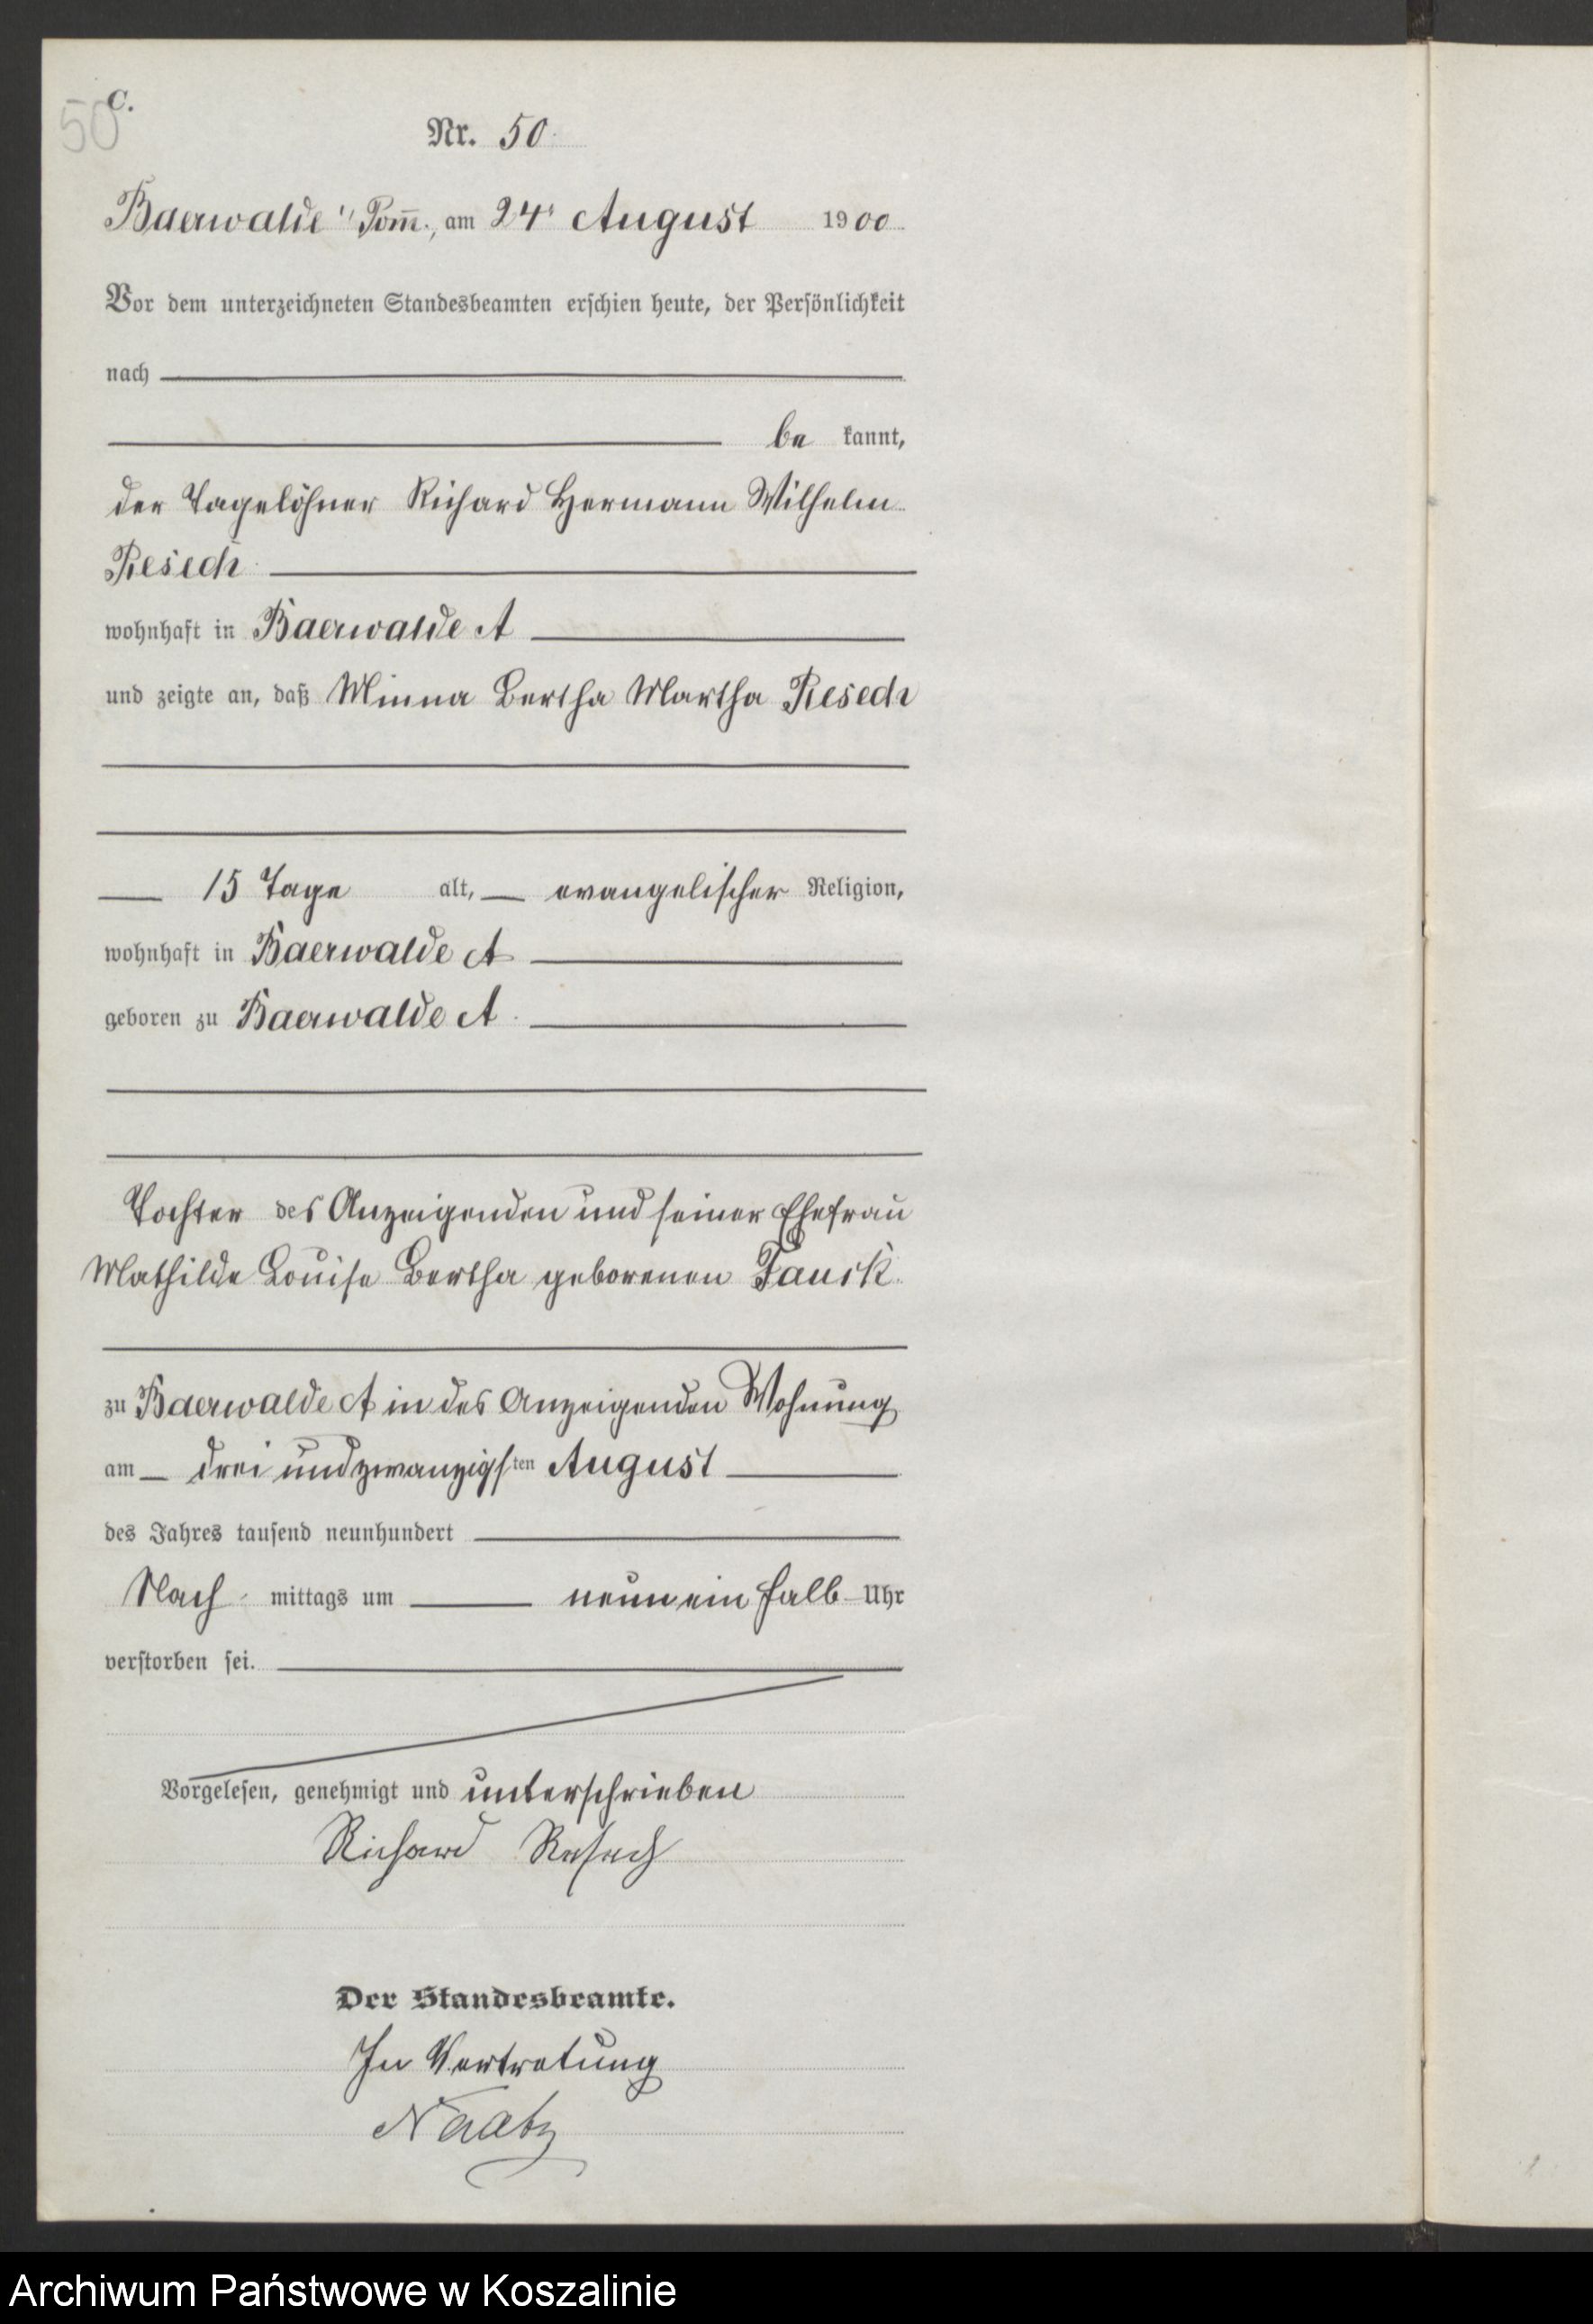 C.
50
Nr. 50.
Baerwalde i/ Pom̅., am 24t August 1900
Vor dem unterzeichneten Standesbeamten erschien heute, der Persönlichkeit
nach
be kannt,
der Tagelöhner Richard Hermann Wilhelm
Resech
wohnhaft in Baerwalde A
und zeigte an, daß Minna Bertha Martha Resech
15 Tage alt, evangelischer Religion,
wohnhaft in Baerwalde A
geboren zu Baerwalde A
Tochter des Anzeigenden und seiner Ehefrau
Mathilde Louise Bertha geborenen Fauck
zu Baerwalde A in des Anzeigenden Wohnung
am drei und zwanzigsten August
des Jahres tausend neunhundert
Nach mittags um neun ein halb Uhr
verstorben sei.
Vorgelesen, genehmigt und unterschrieben
Richard Resech
Der Standesbeamte.
In Vertretung
Naatz
Archiwum Państwowe w Koszalinie